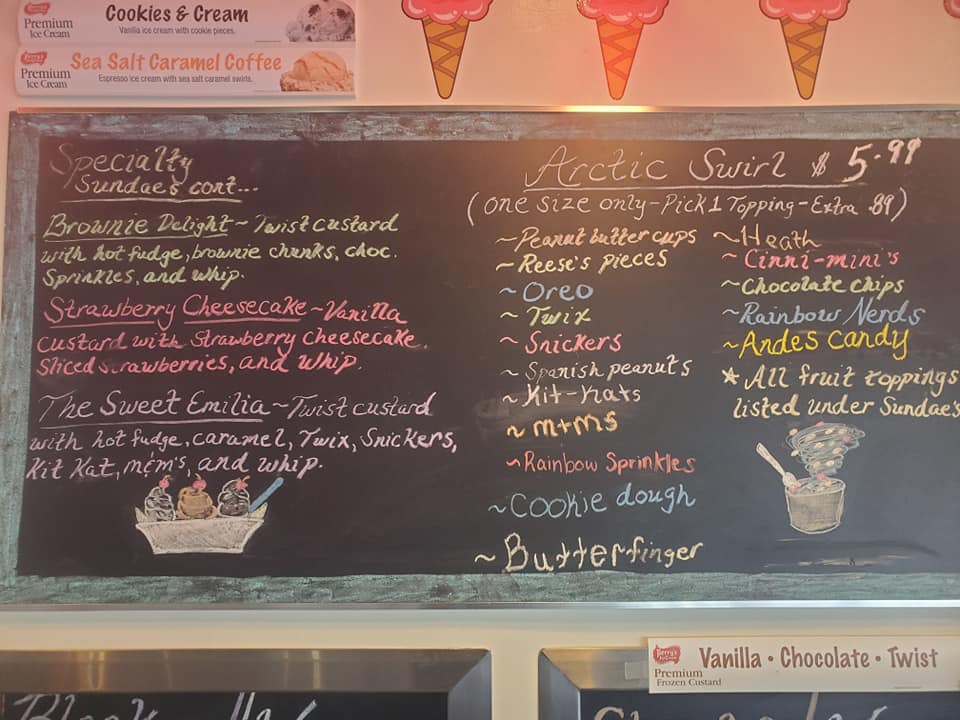 Cookies & Cream
Premium
Ice Cream
Vanilla ice cream with cookie pieces.
Sea Salt Caramel Coffee
Premium
Ice Cream
Espresso ice cream with sea salt caramel swirls.
Specialty
Sundae's cont...
Brownie Delight ~ Twist custard
with hot fudge, brownie chunks, choc.
Sprinkles, and whip.
Strawberry Cheesecake ~ Vanilla
custard with Strawberry Cheesecake.
Sliced strawberries, and whip.
The Sweet Emilia ~ Twist custard
with hot fudge, caramel, Twix, Snickers,
Kit Kat, m&m's, and whip.
Arctic Swirl $ 5.99
(one size only - Pick 1 Topping - Extra .89)
~ Peanut butter cups
~ Reese's pieces
~ Oreo
~ Twix
~ Snickers
~ Spanish peanuts
~ Kit-Kats
~ m+ms
~ Rainbow Sprinkles
~ Cookie dough
~ Butterfinger
~ Heath
~ Cinni-mini's
~ Chocolate chips
~ Rainbow Nerds
~ Andes candy
* All fruit toppings
listed under Sundae's
Vanilla • Chocolate • Twist
Premium
Frozen Custard